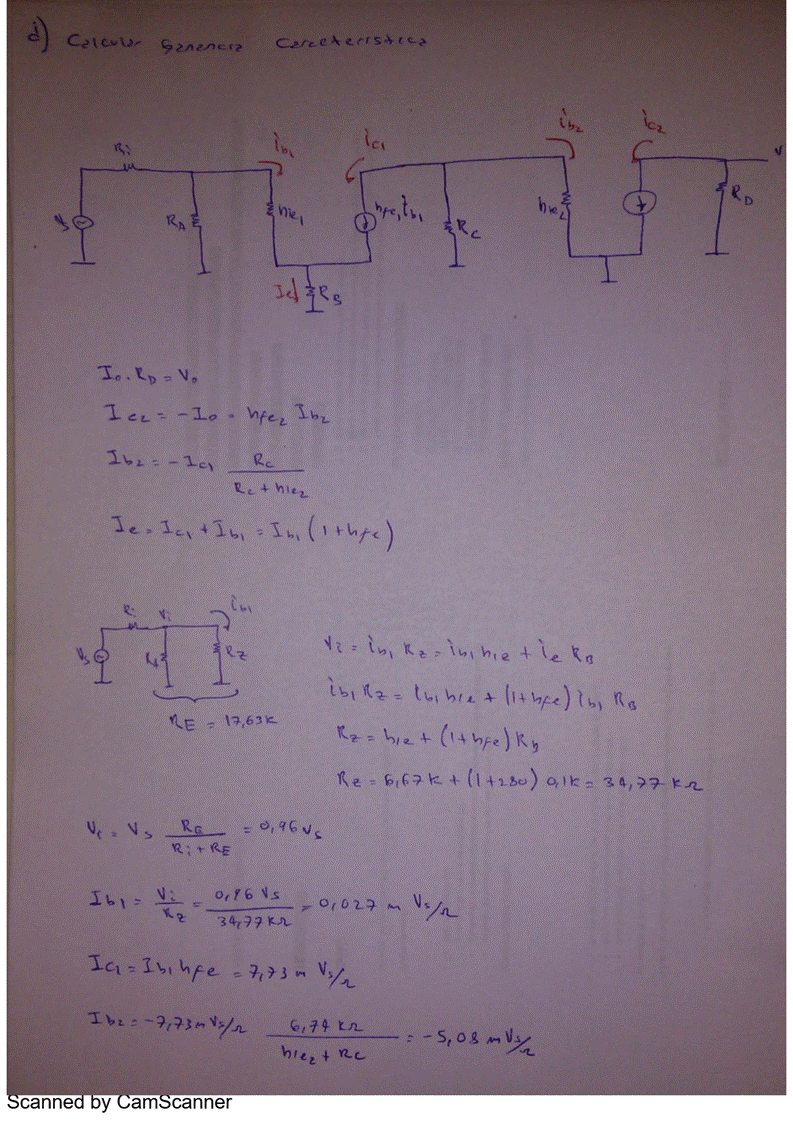 d) Calcular Ganancia Caracteristica
ib1 ic1 ib2 ic2
Ri
Vs RA hie1 hfe1 ib1 RC hie2 RD V
Ie RB
Io . RD = Vo
Ic2 = -Io = hfe2 Ib2
Ib2 = -Ic1 RC / (RC + hie2)
Ie = Ic1 + Ib1 = Ib1 (1 + hfe)
Ri Vi ib1
Vs RA RZ
RE = 17,63K
Vi = ib1 RZ = ib1 hie + ie RB
ib1 RZ = ib1 hie + (1+hfe) ib1 RB
RZ = hie + (1+hfe) RB
RZ = 6,67K + (1+280) 0,1K = 34,77 KΩ
Vi = Vs RE / (Ri + RE) = 0,96 Vs
Ib1 = Vi / RZ = 0,96 Vs / 34,77 KΩ = 0,027 m Vs/Ω
Ic1 = Ib1 hfe = 7,73 m Vs/Ω
Ib2 = -7,73 m Vs/Ω 6,74 KΩ / (hie2 + RC) = -5,08 m Vs/Ω
Scanned by CamScanner